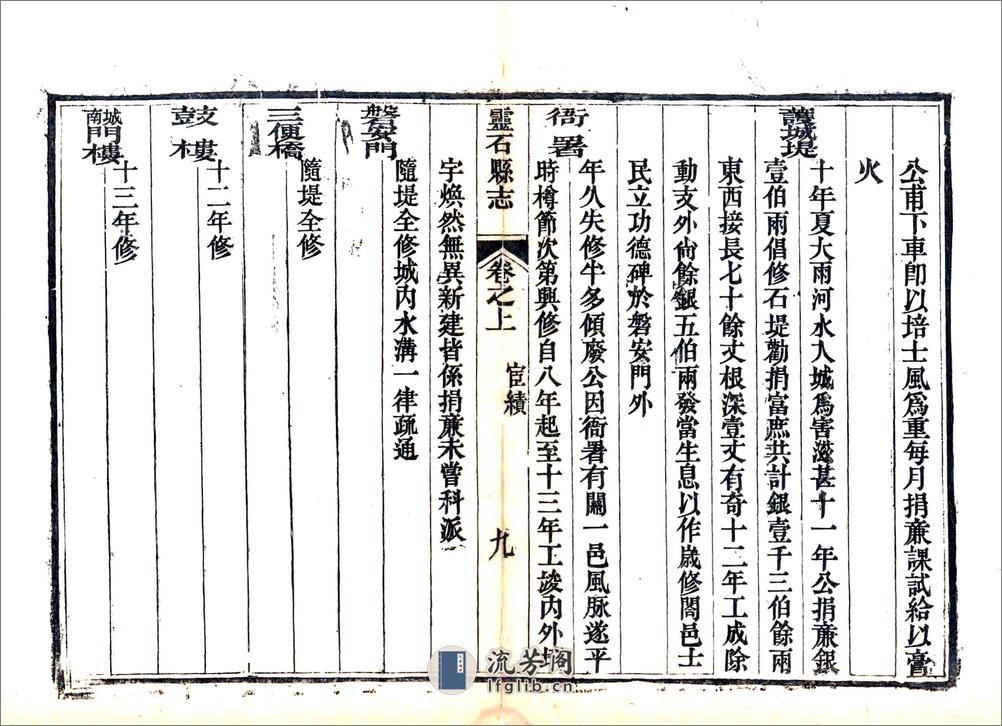 公甫下車卽以培士風爲重每月捐亷課試給以膏
火
護城堤
十年夏大雨河水入城爲害滋甚十一年公捐亷銀
壹伯兩倡修石堤勸捐富庶共計銀壹千三伯餘兩
東西接長七十餘丈根深壹丈有奇十二年工成除
動支外尙餘銀五伯兩發當生息以作歲修闔邑士
民立功德碑於磐安門外
衙署
年久失修半多傾廢公因衙署有關一邑風脉遂平
時樽節次第興修自八年起至十三年工竣內外
靈石縣志
卷之上
宦績
九
字煥然無異新建皆係捐亷未嘗科派
磐安門
隨堤全修城內水溝一律疏通
三便橋
隨堤全修
鼓樓
十二年修
南城門樓
十三年修
流芳閣
lfglib.cn